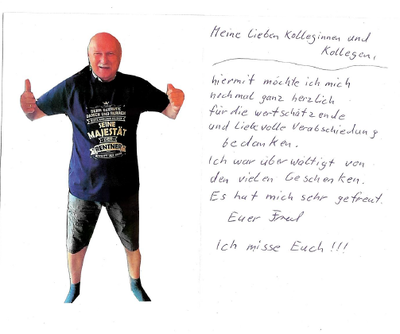 SEINE
MAJESTÄT
DER
RENTNER
Meine lieben Kolleginnen und
Kollegen,
hiermit möchte ich mich
nochmal ganz herzlich
für die wertschätzende
und liebevolle Verabschiedung
bedanken.
Ich war überwältigt von
den vielen Geschenken.
Es hat mich sehr gefreut.
Euer
Ich misse Euch !!!